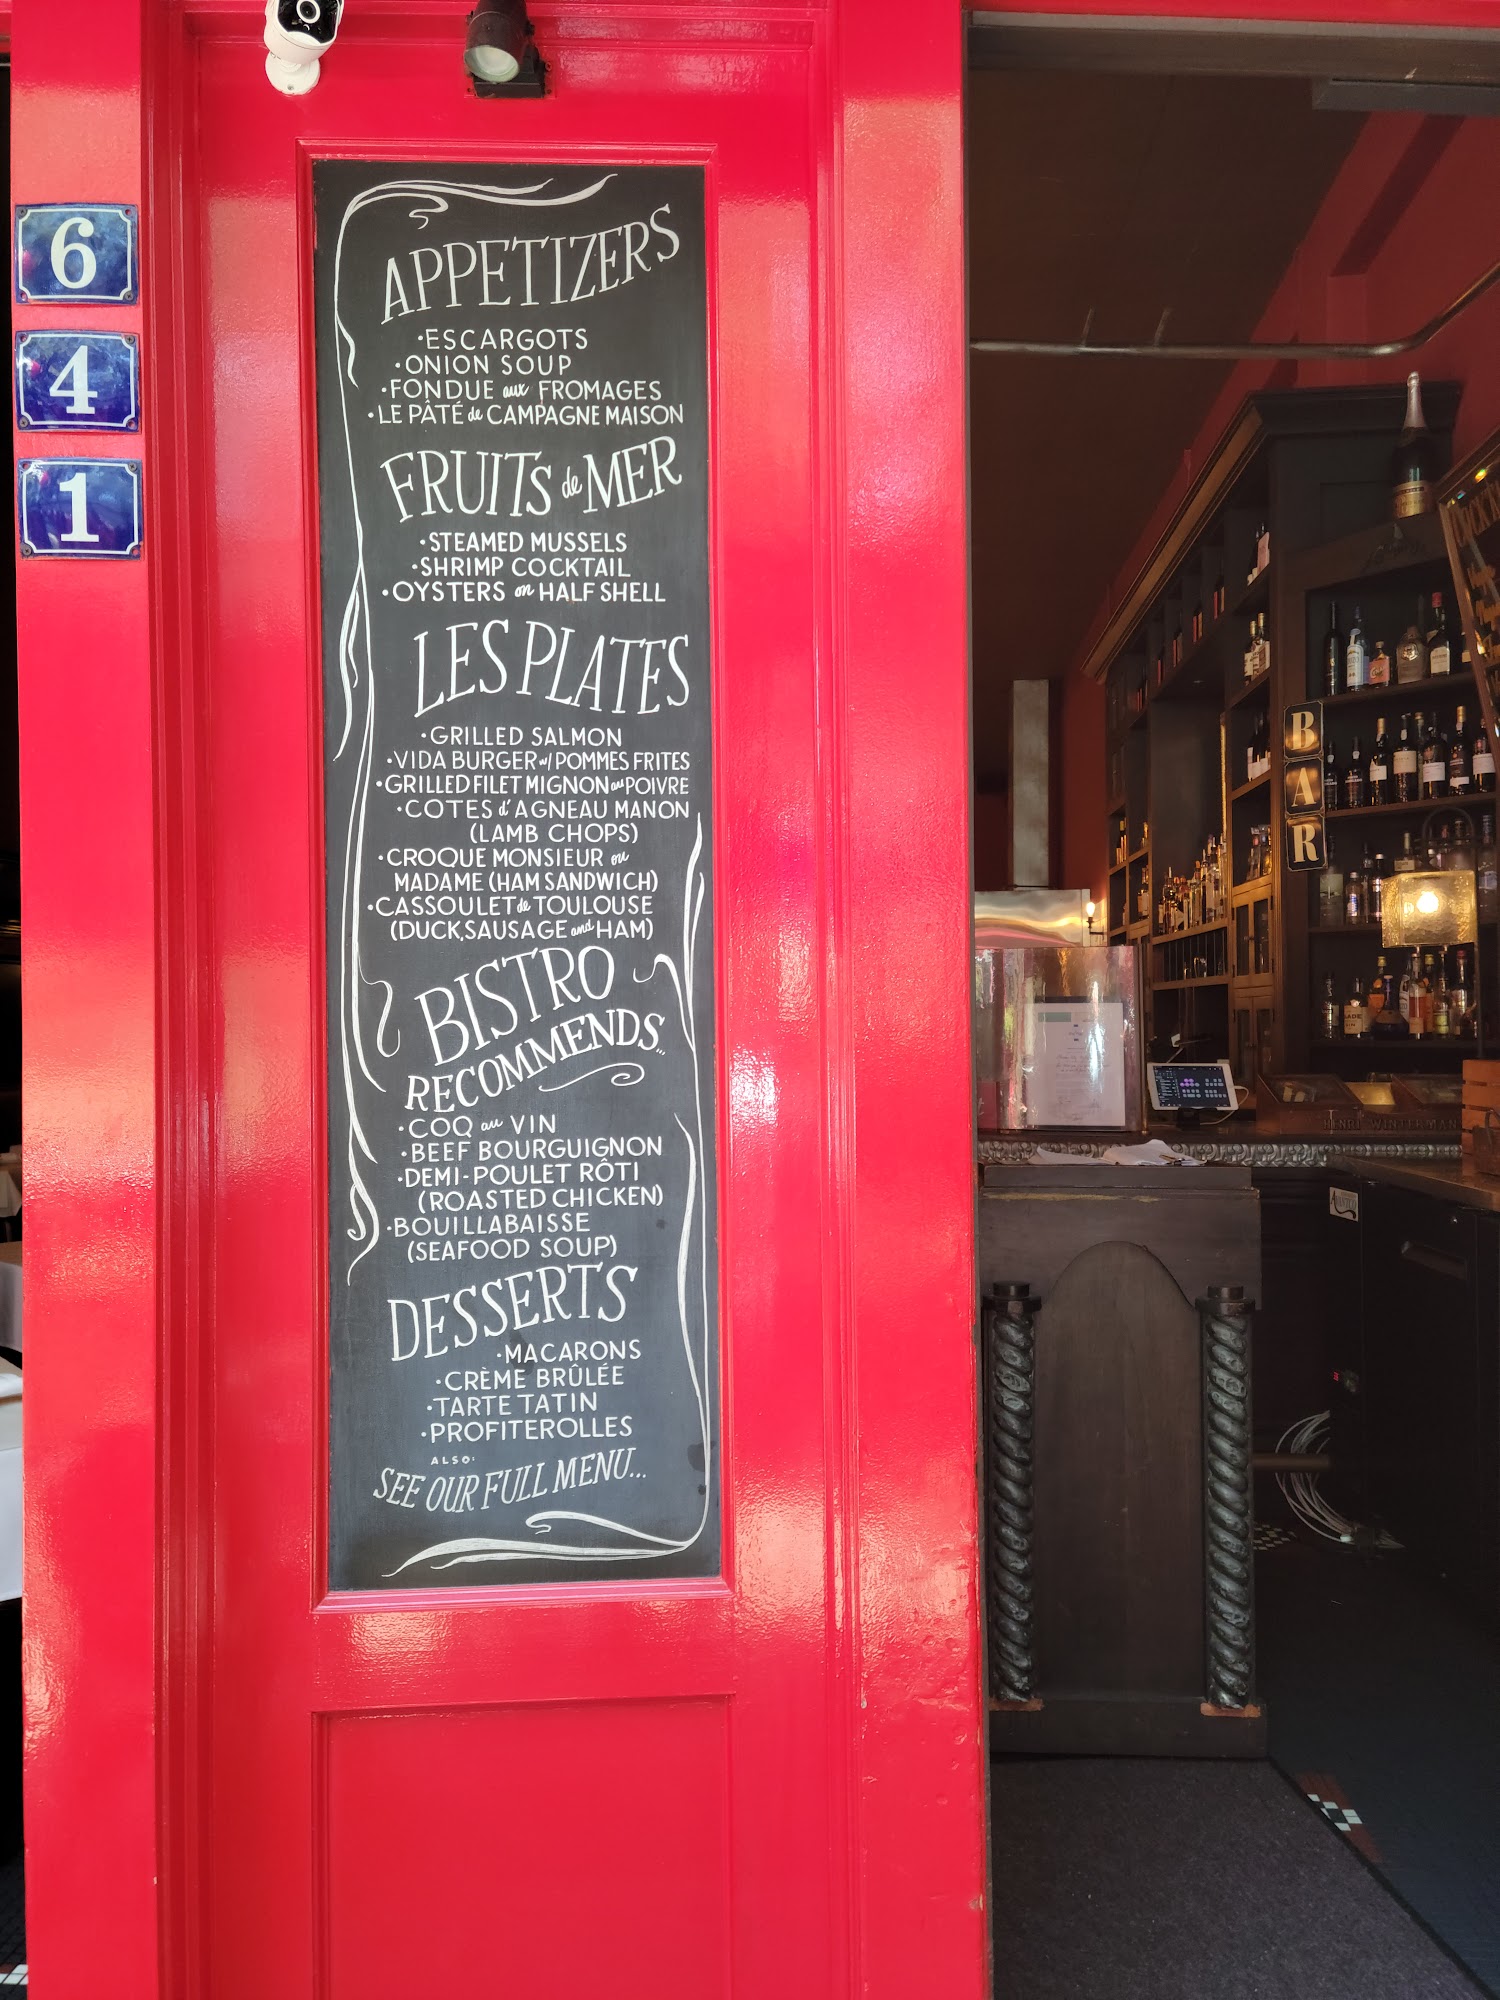 6
4
1
APPETIZERS
·ESCARGOTS
·ONION SOUP
·FONDUE aux FROMAGES
·LE PÂTÉ de CAMPAGNE MAISON
FRUITS de MER
·STEAMED MUSSELS
·SHRIMP COCKTAIL
·OYSTERS on HALF SHELL
LES PLATES
·GRILLED SALMON
·VIDA BURGER w/ POMMES FRITES
·GRILLED FILET MIGNON au POIVRE
·COTES d' AGNEAU MANON
(LAMB CHOPS)
·CROQUE MONSIEUR ou
MADAME (HAM SANDWICH)
·CASSOULET de TOULOUSE
(DUCK, SAUSAGE and HAM)
BISTRO
RECOMMENDS...
·COQ au VIN
·BEEF BOURGUIGNON
·DEMI-POULET RÔTI
(ROASTED CHICKEN)
·BOUILLABAISSE
(SEAFOOD SOUP)
DESSERTS
·MACARONS
·CRÈME BRÛLÉE
·TARTE TATIN
·PROFITEROLLES
ALSO:
SEE OUR FULL MENU...
BAR
HENRI WINTERMAN